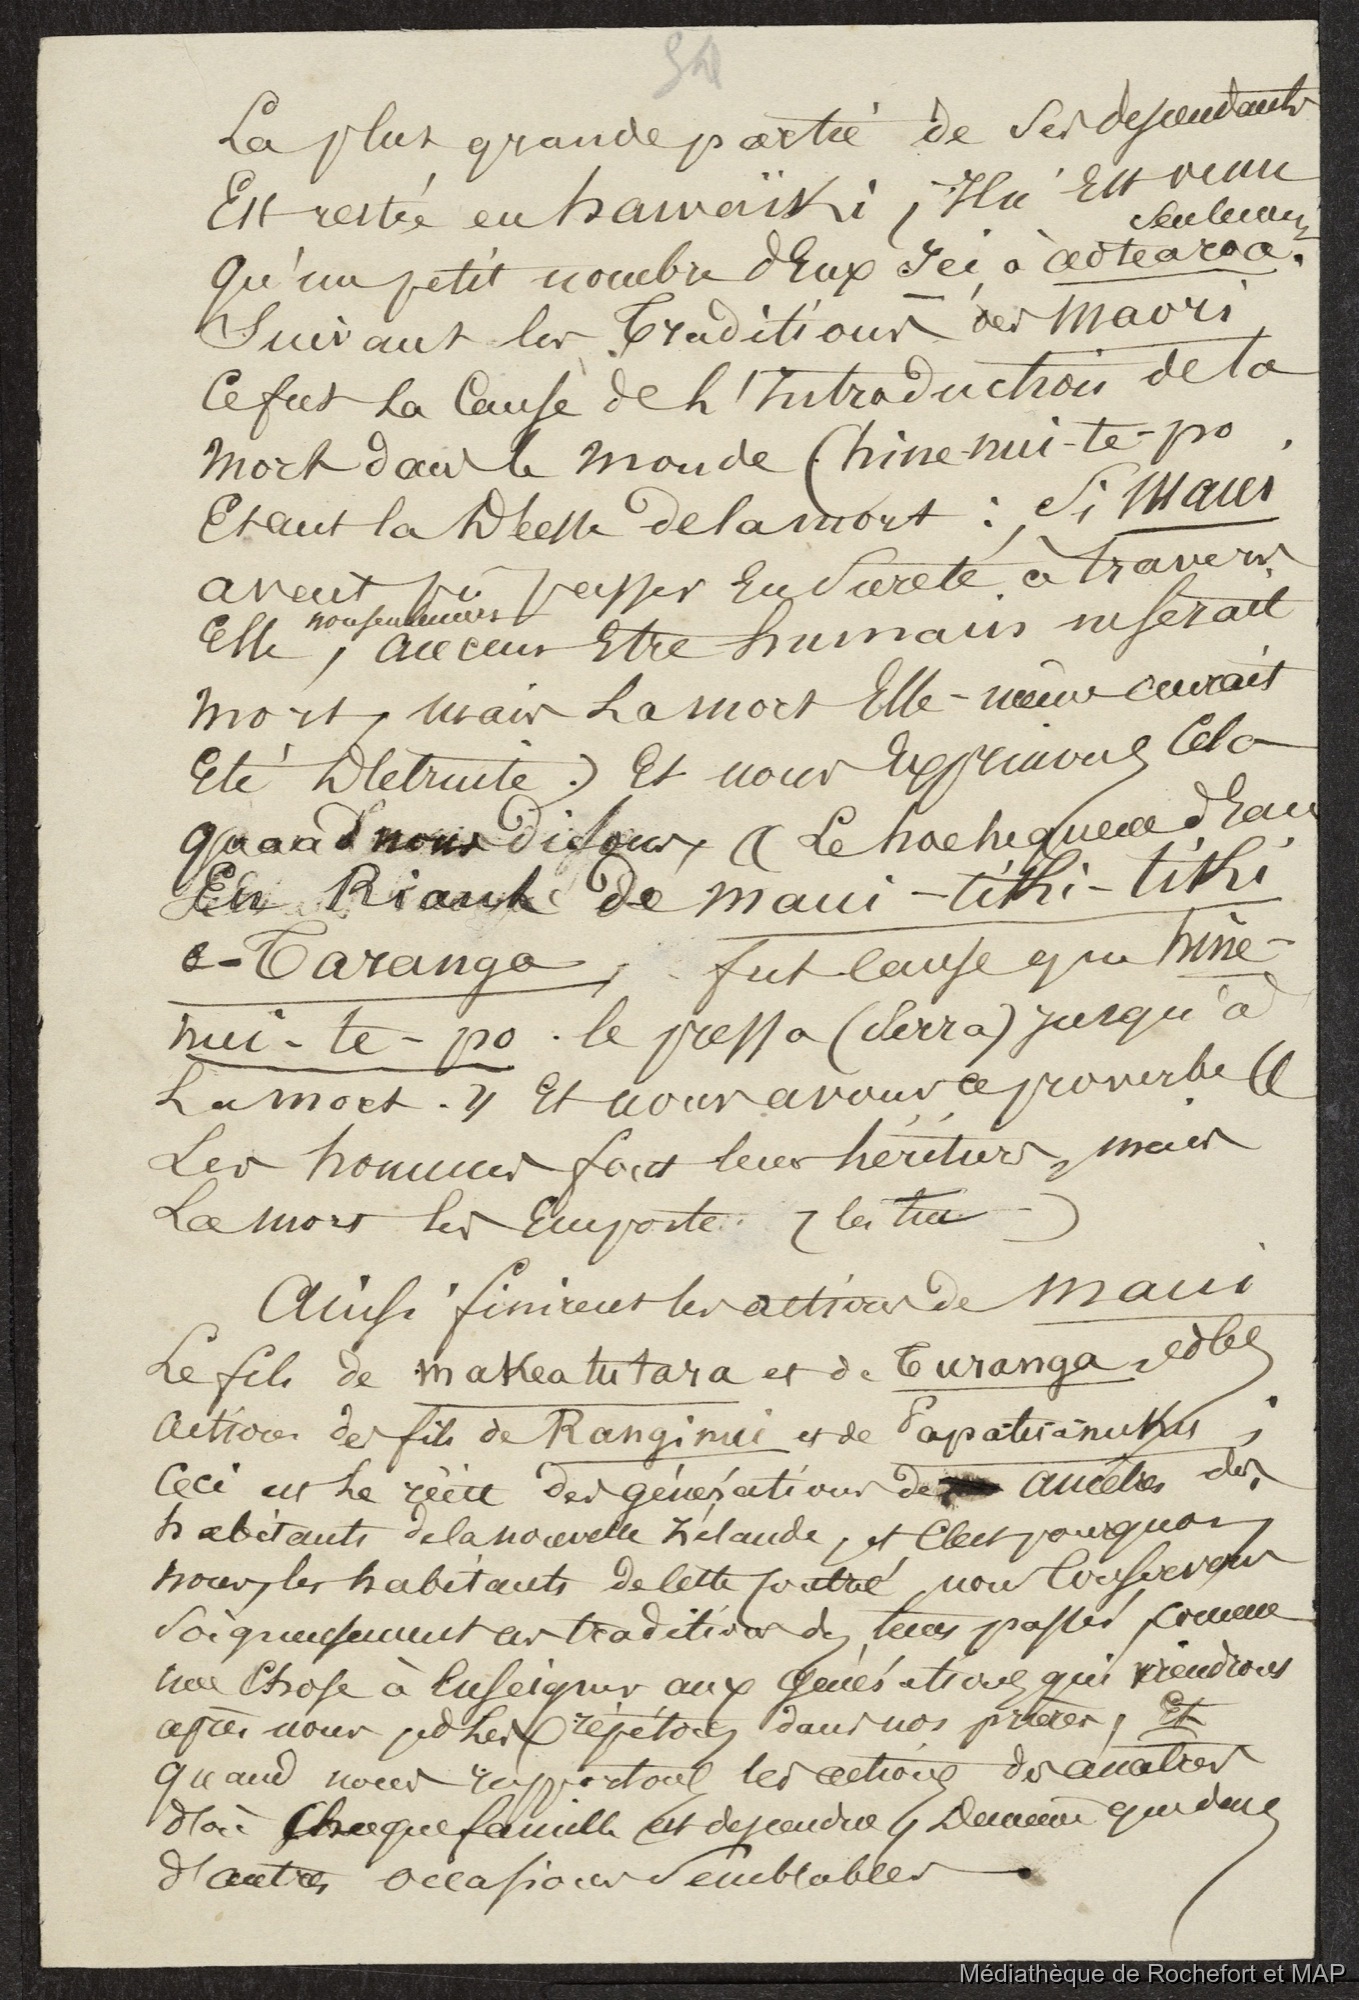 54
La plus grande partie de ses descendants
Est restée en hawaïki, Il n'Est venu
seulement
Qu'un petit nombre d'Eux Ici à aotearoa.
Suivant les Traditions des Maori,
Ce fut La Cause de l'Introduction de la
Mort dans le monde (hine-nui-te-po,
Etant la Déesse de la mort : Si Maui
avait pu passer En Sureté à travers
nonseulement
Elle, aucun Etre humain ne serait
Mort, mais La mort Elle-même aurait
Eté Détruite.) Et nous Exprimons Cela
quand nous Disons, (( Le hochequeue d'Eau
En Riant de maui-tiki-tiki
a-Taranga, fut cause que hine-
nui-te-po le pressa (serra) jusqu'à
La mort. )) Et nous avons ce proverbe ((
Les hommes font leurs héritiers, mais
La mort les Emporte
Ainsi finirent les actions de Maui
Le fils de makeatutara et de Turanga, et les
actions des fils de Ranginui et de Papatu-a-nuku ;
Ceci est Le récit des générations de ancêtres des
habitants de la nouvelle Zélande, et C'est pourquoi
nous, les habitants de cette contrée, nous Conservons
Soigneusement ces traditions des tems passés, comme
une Chose à Enseigner aux Générations qui viendront
après nous, et Les répétons dans nos prières, Et
quand nous rapportons les actions des ancêtres
d'où Chaque famille est descendue, De même que dans
d'autres occasions Semblables.
Médiathèque de Rochefort et MAP